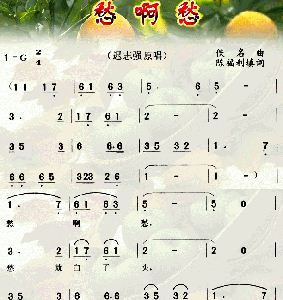 愁啊愁
1=G 2/4 （迟志强原唱） 佚名曲
陈福利填词
(1 1 1 7 6 1 6 3 5 . 6 1 7
3 . 2 1 7 6 1 6 3 5 - 5 -
3 5 3 6 6 · 6 3 5 2 3 -
6 6 6 5 3 2 3 2 6 1 · 5 6 -)
1 . 7 6 1 6 3 5 - 5 -
愁 啊 愁，
3 . 2 1 7 6 1 6 3 2 - 2 -
愁 就 白 了 头，
3 5 3 6 6 · 6 3 5 2 3 -